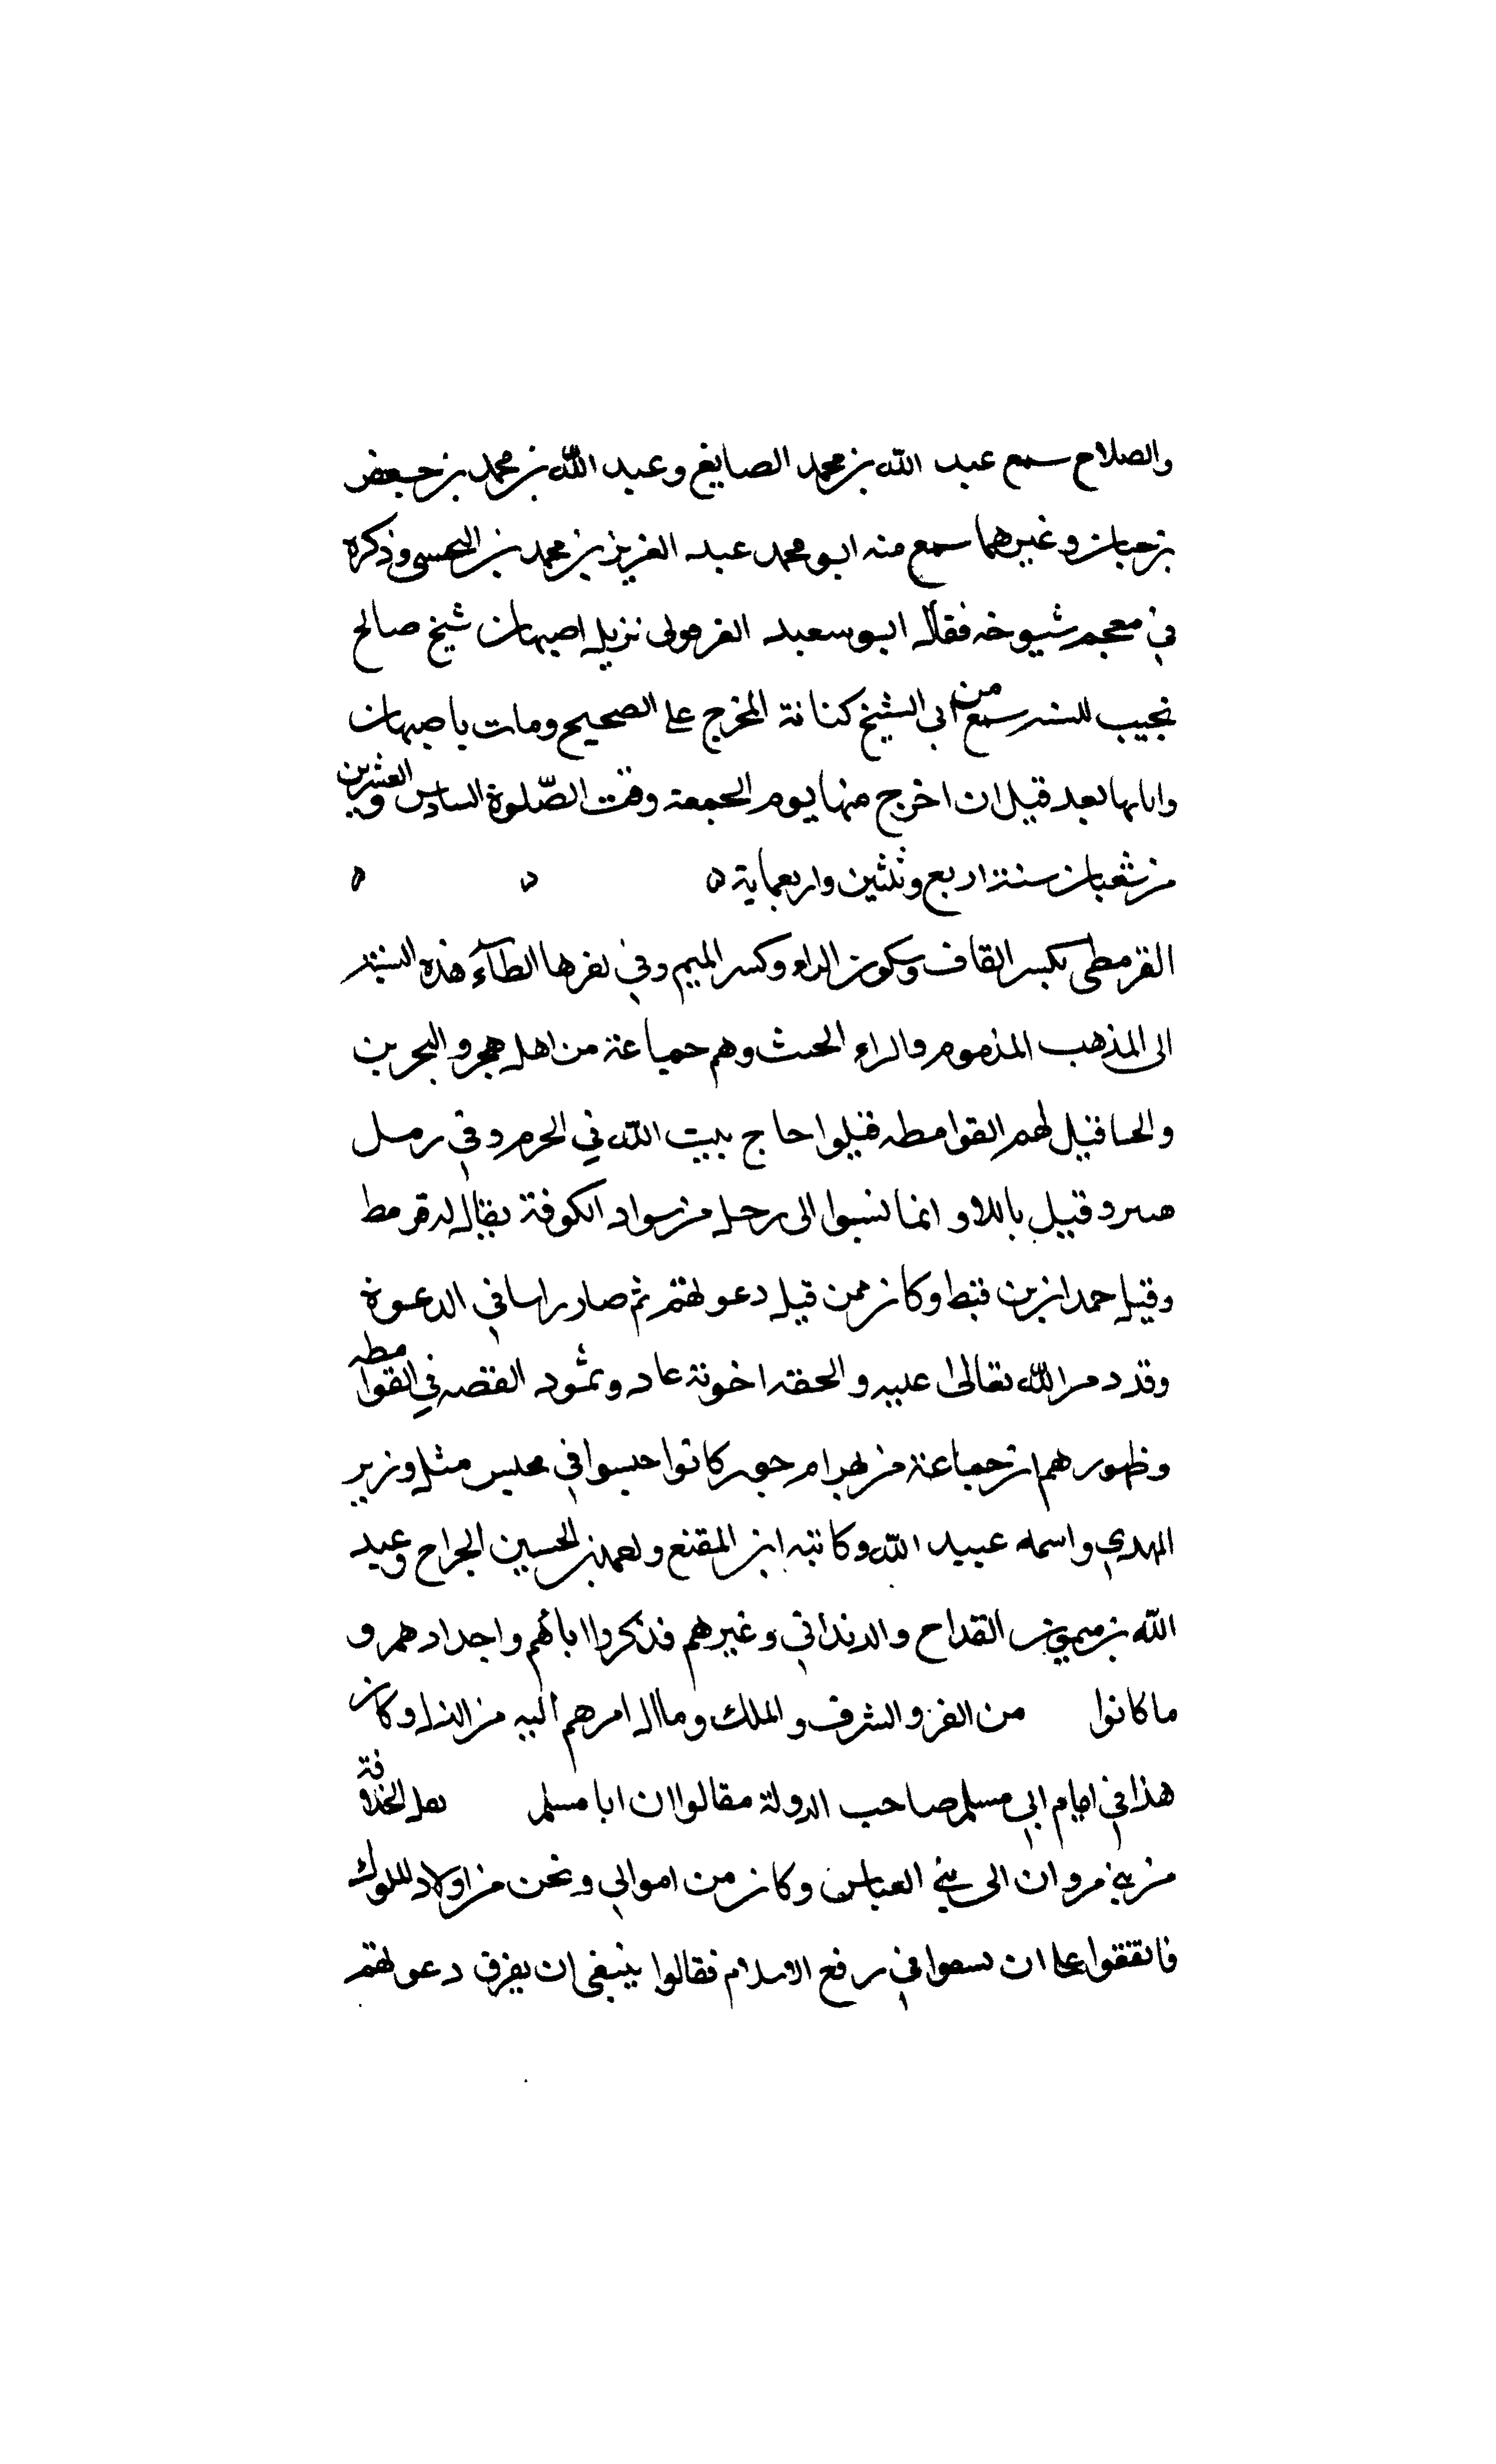 والصلاح سمع عبد الله بن محمد الصايغ وعبد الله بن محمد بن جعفر
بن حبان وغيرهما سمع منه ابو محمد عبد العزيز بن محمد بن وذكره
في معجم شيوخه فقال ابو سعيد نزيل اصبهان شيخ صالح
سمع من ابي الشيخ كتابه المخرج على الصحيح ومات باصبهان
بعد قبل ان اخرج منها يوم الجمعة وقت الصّلوة السادس والعشرين
من شعبان سنة اربع وثلثين واربعماية ٥ ٥ ٥
القرمطي بكسر القاف وسكون الراء وكسر الميم وفي اخرها الطآء هذه النسبة
الى المذهب المذموم والراء وهم جماعة من اهل هجر والبحرين
والحسا قيل لهم القرامطه قتلوا حاج بيت الله في الحرم وفي رمل
وقيل وانما نسبوا الى رجل من سواد الكوفة يقال له قرمط
وقيل حمدان بن قبط وكان ممن قبل دعوتهم ثم صار راسا في الدعوة
وقد دمر الله تعالى عليه والحقه اخوته عاد وثمود القصه في القرامطه
وظهورهم ان جماعة من بهرام جور كانوا حبسوا في محبس مثل وزير
المهدي واسمه عبيد الله وكاتبه ابن المقنع بن الحسين الجراح وعبد
الله بن ميمون القداح والدنداني وغيرهم فذكروا ابائهم واجدادهم و
ما كانوا من العز والشرف والملك وما ال امرهم اليه من الذل وكان
هذا في ايام ابي مسلم صاحب الدولة فقالوا ان ابا مسلم نقل الخلافة
من بني مروان الى بني العباس وكان من اموالي ونحن من اولاد الملوك
فاتفقوا على ان يسعوا في رفع الاسلام فقالوا ينبغي ان يفرق دعوتهم